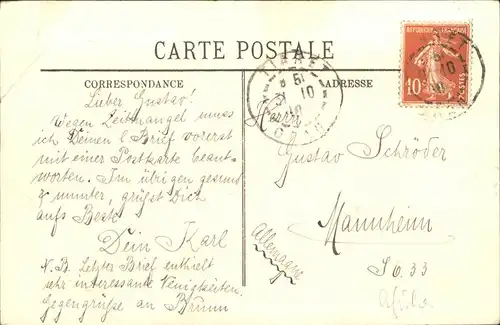 RÉPUBLIQUE FRANÇAISE
10
POSTES
CARTE POSTALE
TIARET
51
10
ORAN
CORRESPONDANCE
ADRESSE
Lieber Gustav!
Wegen Zeitmangel muss
ich Deinen l. Brief vorerst
mit einer Postkarte beant-
worten. Im übrigen gesund
& munter, grüßst Dich
aufs Beste
Dein Karl
N.B. Letzter Brief enthielt
sehr interessante Neuigkeiten.
Gegengrüße an Brunn
Herrn
Gustav Schröder
Mannheim
Allemagne
S6.33